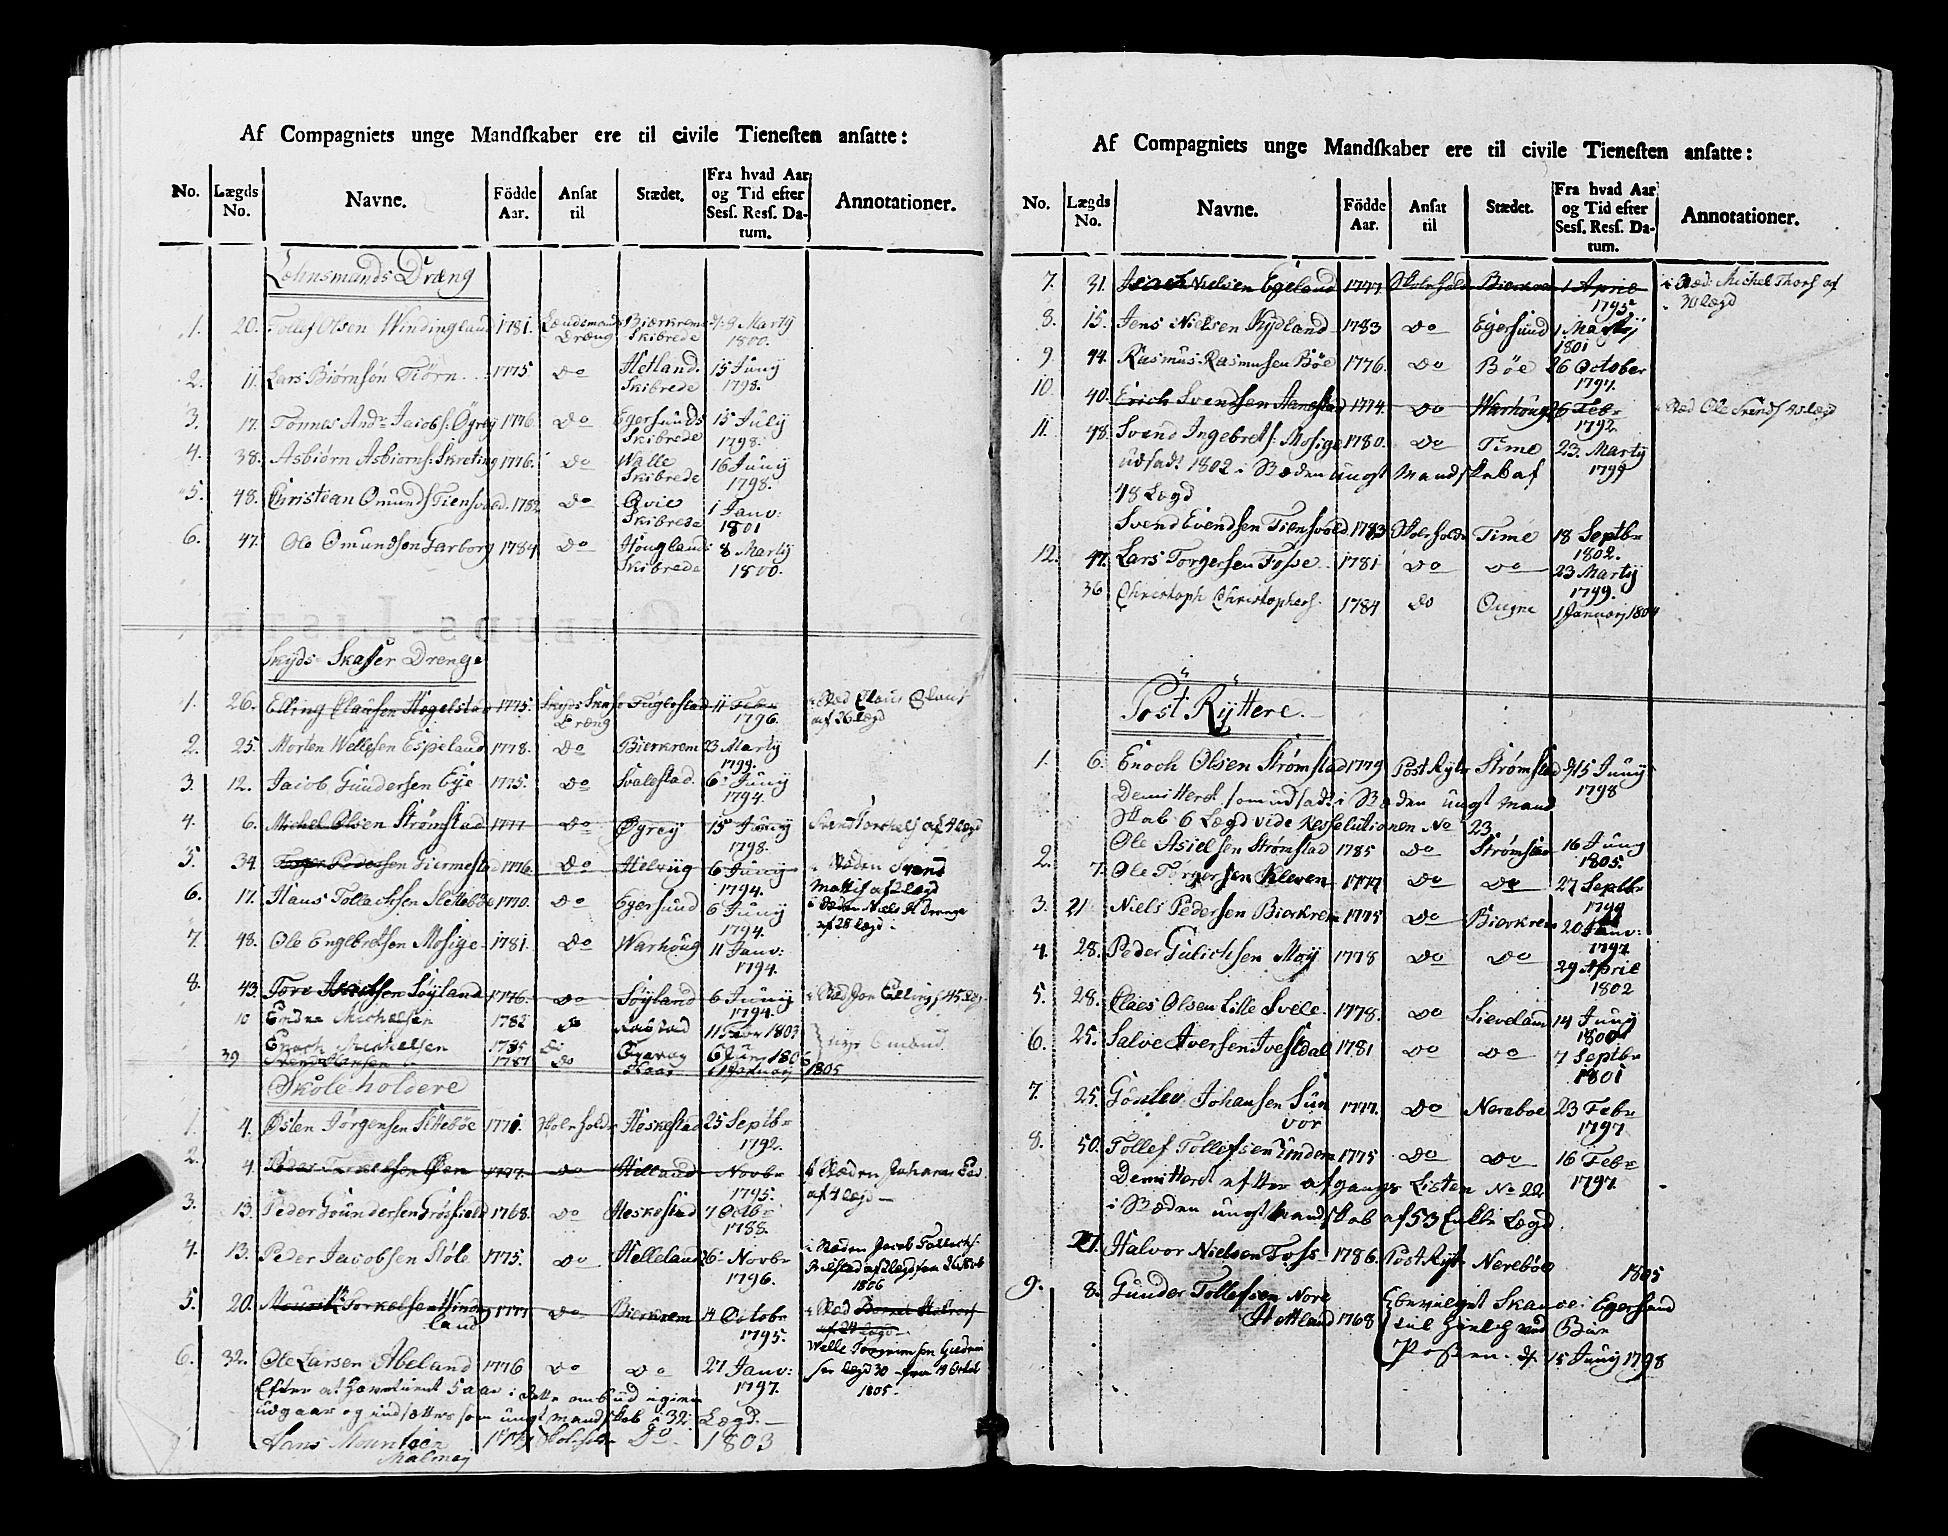 Af Compagniets unge Mandſkaber ere til civile Tieneſten anſatte:
No. Lægds No. Navne. Födde Aar. Anſat til Stædet. Fra hvad Aar og Tid efter Seſſ. Reſſ. Datum. Annotationer.
Lehnsmands Dræng
1. 20. Tollef Olsen Windingland 1781. Lændsmands Dræng Bierkrems Skibrede d: 9 Marty 1800.
2. 11. Lars Biørnsøn Tiørn 1775 do Hetland Skibrede 15 Juny 1798.
3. 17. Tonnes And: Jacobs: Ögrey 1776. do Egersunds Skibrede 15 July 1798.
4. 38. Asbiørn Asbiorns: Skreting 1776. do Walle Skibrede 16 Juny 1798.
5. 48. Christian Omunds Tiensvold 1782 do Qvie Skibrede 1 Janv: 1801
6. 47. Ole Omundsen Garborg 1784 do Hougland Skibrede 8 Marty 1800.
Skyds-Skaffer Drenge
1. 26. Elling Clausen Hogelstad 1775. Skyds Skaf Dræng Fuglestad 11 Febr 1796. Claus Claus af 26 lægd
2. 25. Morten Wellesen Espeland 1778. do Bierkrem 23 Marty 1799.
3. 12. Jacob Gundersen Eye 1775. do Svalestad. 6 Juny 1794.
4. 6. Michel Olsen Strømstad 1777 do Øgrey 15 Juny 1798. Svend Torkels af 4 lægd
5. 34. Pedersen Giermestad 1776. do Helvig 6 Juny 1794. i Stæden Svend Mattis af 2 lægd
6. 17. Hans Tollachsen Slettebøe 1770. do Egersund 6 Juny 1794. i Stæden Niels H Drenge af 28 lægd
7. 48. Ole Englbretsen Mosige 1781. do Warhoug 11 Janv: 1794.
8. 43. Tore Søyland 1776. do Søyland 6 Juny 1794. i Stæd Jon Ellings 45 læg
10 Endre Michelsen 1782 do 11 Febr 1803
Enoch Michelsen 1785 do Øgrey 6 Juny 1805
39 1787 do 1805
Skoleholdere
1. 4. Østen Jörgensen Slettebøe 1771. Skoleholdr Heskestad 25 Septbr 1792.
2. 4. Peder Øen 1777. do Helland Novbr 1795. i Stæden Johanes af 4 lægd
3. 13. Peder Goundersen Grøsfield 1768. do Heskestad 7 Octbr 1788.
4. 13. Peder Jacobsen Støle 1775. do Helleland 6 Novbr 1796. i Stæden Jacob Tollachs: 1806
5. 20. Mourits Torkelsen Windingland 1777 do Bierkrem 14 Octobr 1795.
6. 32. Ole Larsen Abeland 1776 do do 27 Janv: 1797. 1805.
Efter at have tient 5 aar i dette ombud igien
udgaar og indsættes som ungt mandskab i 32 Lægd.
Hans Mountsen Malmey Skolehol: Do 1803
Af Compagniets unge Mandſkaber ere til civile Tieneſten anſatte:
No. Lægds No. Navne. Födde Aar. Anſat til Stædet. Fra hvad Aar og Tid efter Seſſ. Reſſ. Datum. Annotationer.
7. 31. Nielsen Egeland 1777. Skolehold Bierkrem 1 April 1795 i Stæd: Michel Thors af 30 lægd
8. 15. Jens Nielsen Nydland 1783 do Egersund 1 Marty 1801
9. 44. Rasmus Rasmussen Bøe 1776. do Bøe 26 October 1797.
10. 40. Erich Svendsen Aanestad 1774. do Warhoug 26 Febr 1792. i Stæd Ole Svends 43 lægd
11. 48. Svend Ingebrets: Mosige 1780. do Time 23. Marty 1799
udsadt 1802 i Stæden ungt Mandskab af
48 Lægd
Svend Evendsen Tiensvold 1783 Skoleholdr Time 18 Septbr 1802.
12. 47. Lars Torgersen Fosse 1781 do do 23 Marty 1799.
36 Christoph Christophers. 1784 do Ougne 1 January 1804
Post Ryttere.
1. 6. Enoch Olsen Strømstad 1779 Post Rytr Strømstad d: 15 Juny 1798
Demitteret som udsadt i Stæden ungt Mand
skab 6 Lægd vide Resselutionen No 23
Ole Asielsen Strømstad 1785 do Strømstad 16 Juny 1805.
2. 7. Ole Torgersen Kleven 1777 do do 27 Septbr 1799
3. 21 Niels Pedersen Bierkrem 1775 do Bierkrem 20 Janv: 1797
4. 28. Peder Gulichsen Moy 1778 do do 29 April 1802
5. 28. Claes Olsen Lille Svele 1778. do Sieveland 14 Juny 1800
6. 25. Salve Iversen Ivesdal 1781 do do 7 Septbr 1801
7. 25. Gødlev Johansen Sunvor 1777. do Nereboe 23 Febr 1797
8. 50. Tollef Tollefsen Undem 1775 do do 16 Febr 1797.
Demitteret efter afgangs Listen No 22
i Stæden ungt Mandskab af 53 Enkte Lægd
27. Halvor Nielsen Foss 1786. Post Rytr Nerebøe 1805
9. 8. Gunder Tollefsen Nore Hetland 1768 Skanse i Egersund
til
Posten. d: 15 Juny 1798